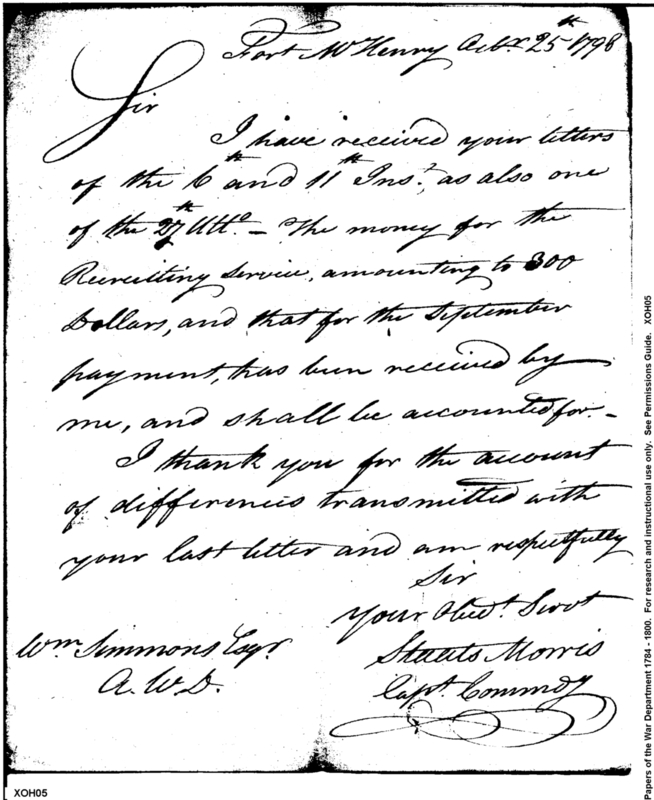 Fort McHenry Octbr. 25th 1798
Sir
I have received your letters
of the 6th and 11th Inst., as also one
of the 27th Ulto. — The money for the
Recruiting Service, amounting to 300
Dollars, and that for the September
payment, has been received by
me, and shall be accounted for. —
I thank you for the account
of differences transmitted with
your last letter and am respectfully
Sir
your Obedt. Servt
Staats Morris
Capt. Commdg
Wm Simmons Esqr.
A. W. D.
XOH05
Papers of the War Department 1784 - 1800. For research and instructional use only. See Permissions Guide. XOH05